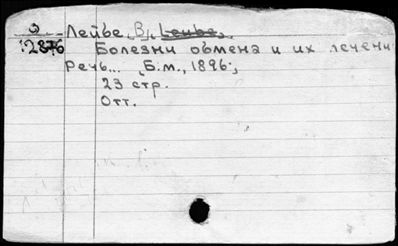 Лейбе, В.
12876 Болезни обмена и их лечени
Речь... Б.м., 1896;
23 стр.
Отт.